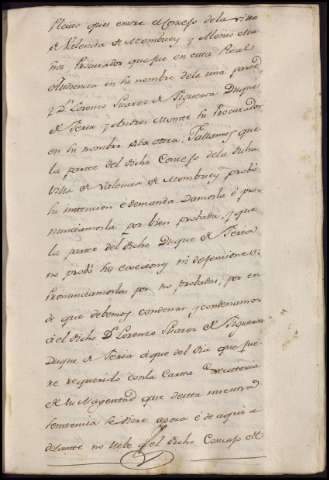 Pleito que es entre el Concejo de la villa
de Valencia de Mombuey y Alonso
Procurador que fue en esta Real
Audiencia en su nombre de la una parte
y Dn Lorenzo Suarez de Figueroa Duque
de Feria y Andres Monte su Procurador
en su nombre de la otra. Fallamos que
la parte del dicho Concejo de la dicha
villa de Valencia de Mombuey probó
su intencion e demanda damosla e pro
nunciamosla por bien probada, y que
la parte del dicho Duque de Feria
no probó sus exceciones ni defensiones
Pronunciamoslas por no probadas, por en
de que debemos condenar, y condenamos
á el dicho Dn Lorenzo Suarez de Figueroa
Duque de Feria á que del dia que fue
re requerido con la Carta executoria
de su Magestad que de esta nuestra
sentencia se diere agora e de aqui a
delante no lleve el dicho Concejo de